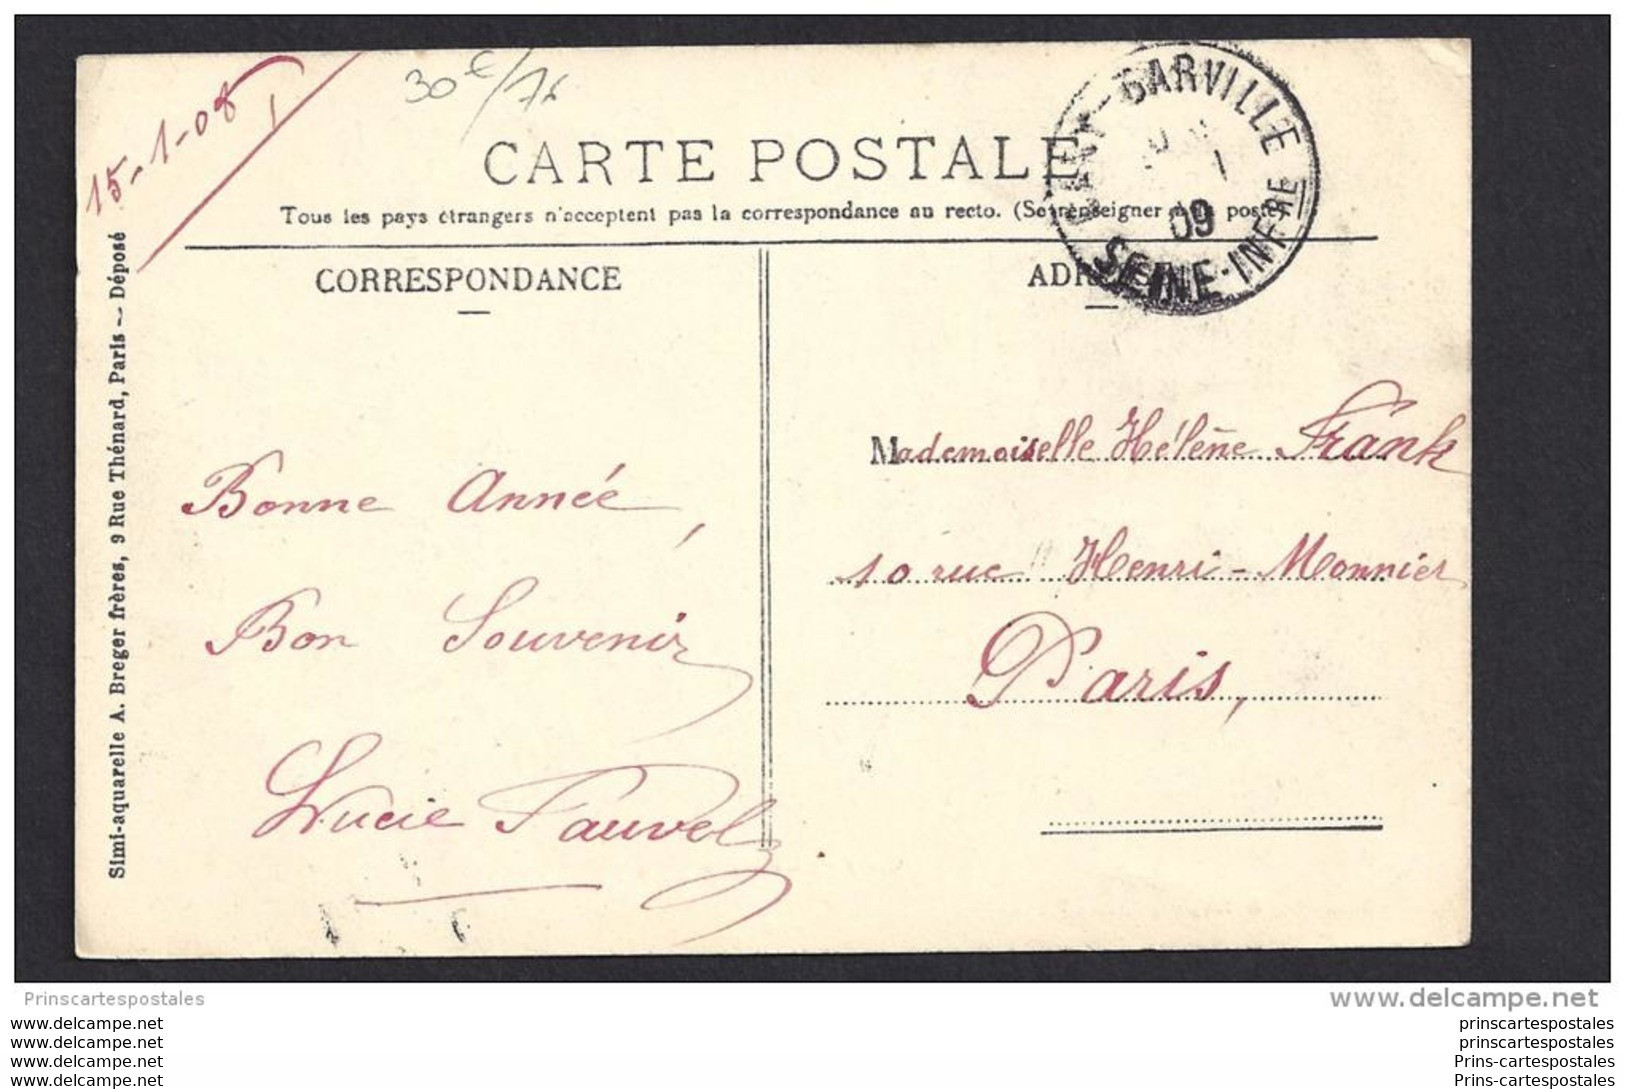 15-1-08
30€/76
CARTE POSTALE
Tous les pays étrangers n'acceptent pas la correspondance au recto. (Se renseigner à la poste).
CORRESPONDANCE
ADRESSE
BARVILLE
09
SEINE-INFRE
Simi-aquarelle A. Breger frères, 9 Rue Thénard, Paris -- Déposé
Bonne Année,
Bon Souvenir
Lucie Fauvel
Mademoiselle Hélène Frank
10 rue Henri-Monnier
Paris,
Prinscartespostales
www.delcampe.net
www.delcampe.net
www.delcampe.net
www.delcampe.net
www.delcampe.net
prinscartespostales
prinscartespostales
Prins-cartespostales
Prins-cartespostales